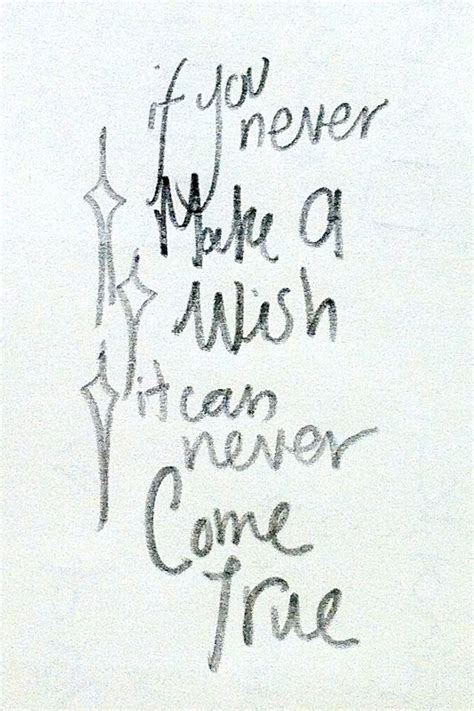 if you
never
Make a
Wish
it can
never
Come
True